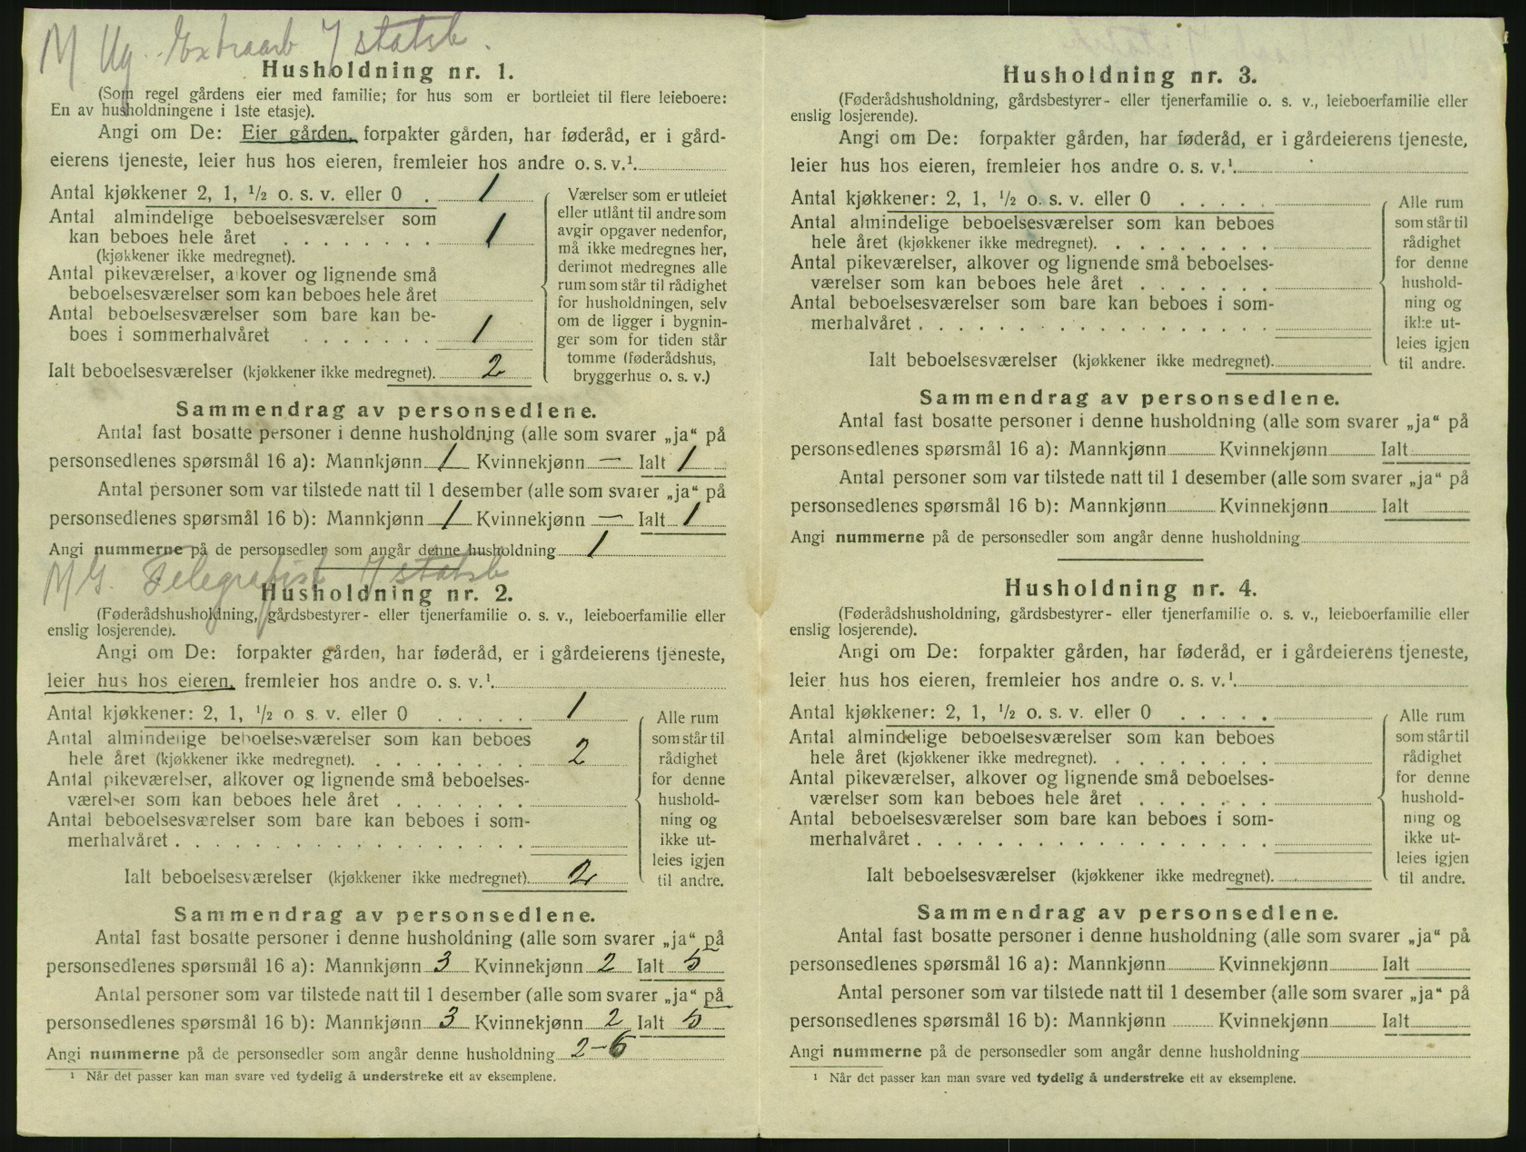 M Ug. Extraarb 7 statsb.
Husholdning nr. 1.
(Som regel gårdens eier med familie; for hus som er bortleiet til flere leieboere:
En av husholdningene i 1ste etasje).
Angi om De: Eier gården, forpakter gården, har føderåd, er i gård-
eierens tjeneste, leier hus hos eieren, fremleier hos andre o. s. v.¹
Antal kjøkkener 2, 1, ½ o. s. v. eller 0 . 1
Antal almindelige beboelsesværelser som
kan beboes hele året . . . . . . . . 1
(kjøkkener ikke medregnet).
Antal pikeværelser, alkover og lignende små
beboelsesværelser som kan beboes hele året
Antal beboelsesværelser som bare kan be-
boes i sommerhalvåret . . . . . . . 1
Ialt beboelsesværelser (kjøkkener ikke medregnet). 2
Værelser som er utleiet
eller utlånt til andre som
avgir opgaver nedenfor,
må ikke medregnes her,
derimot medregnes alle
rum som står til rådighet
for husholdningen, selv
om de ligger i bygnin-
ger som for tiden står
tomme (føderådshus,
bryggerhus o. s. v.)
Sammendrag av personsedlene.
Antal fast bosatte personer i denne husholdning (alle som svarer „ja“ på
personsedlenes spørsmål 16 a): Mannkjønn 1 Kvinnekjønn — Ialt 1
Antal personer som var tilstede natt til 1 desember (alle som svarer „ja“ på
personsedlenes spørsmål 16 b): Mannkjønn 1 Kvinnekjønn — Ialt 1
Angi nummerne på de personsedler som angår denne husholdning 1
M G. Telegrafist 7 statsb
Husholdning nr. 2.
(Føderådshusholdning, gårdsbestyrer- eller tjenerfamilie o. s. v., leieboerfamilie eller
enslig losjerende).
Angi om De: forpakter gården, har føderåd, er i gårdeierens tjeneste,
leier hus hos eieren, fremleier hos andre o. s. v.¹
Antal kjøkkener: 2, 1, ½ o. s. v. eller 0 . . . . . 1
Antal almindelige beboelsesværelser som kan beboes
hele året (kjøkkener ikke medregnet). . . . . . . . 2
Antal pikeværelser, alkover og lignende små beboelses-
værelser som kan beboes hele året . . . . . . .
Antal beboelsesværelser som bare kan beboes i som-
merhalvåret . . . . . . . . . . . . . . . . .
Ialt beboelsesværelser (kjøkkener ikke medregnet). 2
Alle rum
som står til
rådighet
for denne
hushold-
ning og
ikke ut-
leies igjen
til andre.
Sammendrag av personsedlene.
Antal fast bosatte personer i denne husholdning (alle som svarer „ja“ på
personsedlenes spørsmål 16 a): Mannkjønn 3 Kvinnekjønn 2 Ialt 5
Antal personer som var tilstede natt til 1 desember (alle som svarer „ja“ på
personsedlenes spørsmål 16 b): Mannkjønn 3 Kvinnekjønn 2 Ialt 5
Angi nummerne på de personsedler som angår denne husholdning 2-6
¹ Når det passer kan man svare ved tydelig å understreke ett av eksemplene.
Husholdning nr. 3.
(Føderådshusholdning, gårdsbestyrer- eller tjenerfamilie o. s. v., leieboerfamilie eller
enslig losjerende).
Angi om De: forpakter gården, har føderåd, er i gårdeierens tjeneste,
leier hus hos eieren, fremleier hos andre o. s. v.¹
Antal kjøkkener: 2, 1, ½ o. s. v. eller 0 . . . . .
Antal almindelige beboelsesværelser som kan beboes
hele året (kjøkkener ikke medregnet). . . . . . . .
Antal pikeværelser, alkover og lignende små beboelses-
værelser som kan beboes hele året . . . . . . .
Antal beboelsesværelser som bare kan beboes i som-
merhalvåret . . . . . . . . . . . . . . . . .
Ialt beboelsesværelser (kjøkkener ikke medregnet).
Alle rum
som står til
rådighet
for denne
hushold-
ning og
ikke ut-
leies igjen
til andre.
Sammendrag av personsedlene.
Antal fast bosatte personer i denne husholdning (alle som svarer „ja“ på
personsedlenes spørsmål 16 a): Mannkjønn Kvinnekjønn Ialt
Antal personer som var tilstede natt til 1 desember (alle som svarer „ja“ på
personsedlenes spørsmål 16 b): Mannkjønn Kvinnekjønn Ialt
Angi nummerne på de personsedler som angår denne husholdning
Husholdning nr. 4.
(Føderådshusholdning, gårdsbestyrer- eller tjenerfamilie o. s. v., leieboerfamilie eller
enslig losjerende).
Angi om De: forpakter gården, har føderåd, er i gårdeierens tjeneste,
leier hus hos eieren, fremleier hos andre o. s. v.¹
Antal kjøkkener: 2, 1, ½ o. s. v. eller 0 . . . . .
Antal almindelige beboelsesværelser som kan beboes
hele året (kjøkkener ikke medregnet). . . . . . . .
Antal pikeværelser, alkover og lignende små beboelses-
værelser som kan beboes hele året . . . . . . .
Antal beboelsesværelser som bare kan beboes i som-
merhalvåret . . . . . . . . . . . . . . . . .
Ialt beboelsesværelser (kjøkkener ikke medregnet).
Alle rum
som står til
rådighet
for denne
hushold-
ning og
ikke ut-
leies igjen
til andre.
Sammendrag av personsedlene.
Antal fast bosatte personer i denne husholdning (alle som svarer „ja“ på
personsedlenes spørsmål 16 a): Mannkjønn Kvinnekjønn Ialt
Antal personer som var tilstede natt til 1 desember (alle som svarer „ja“ på
personsedlenes spørsmål 16 b): Mannkjønn Kvinnekjønn Ialt
Angi nummerne på de personsedler som angår denne husholdning
¹ Når det passer kan man svare ved tydelig å understreke ett av eksemplene.